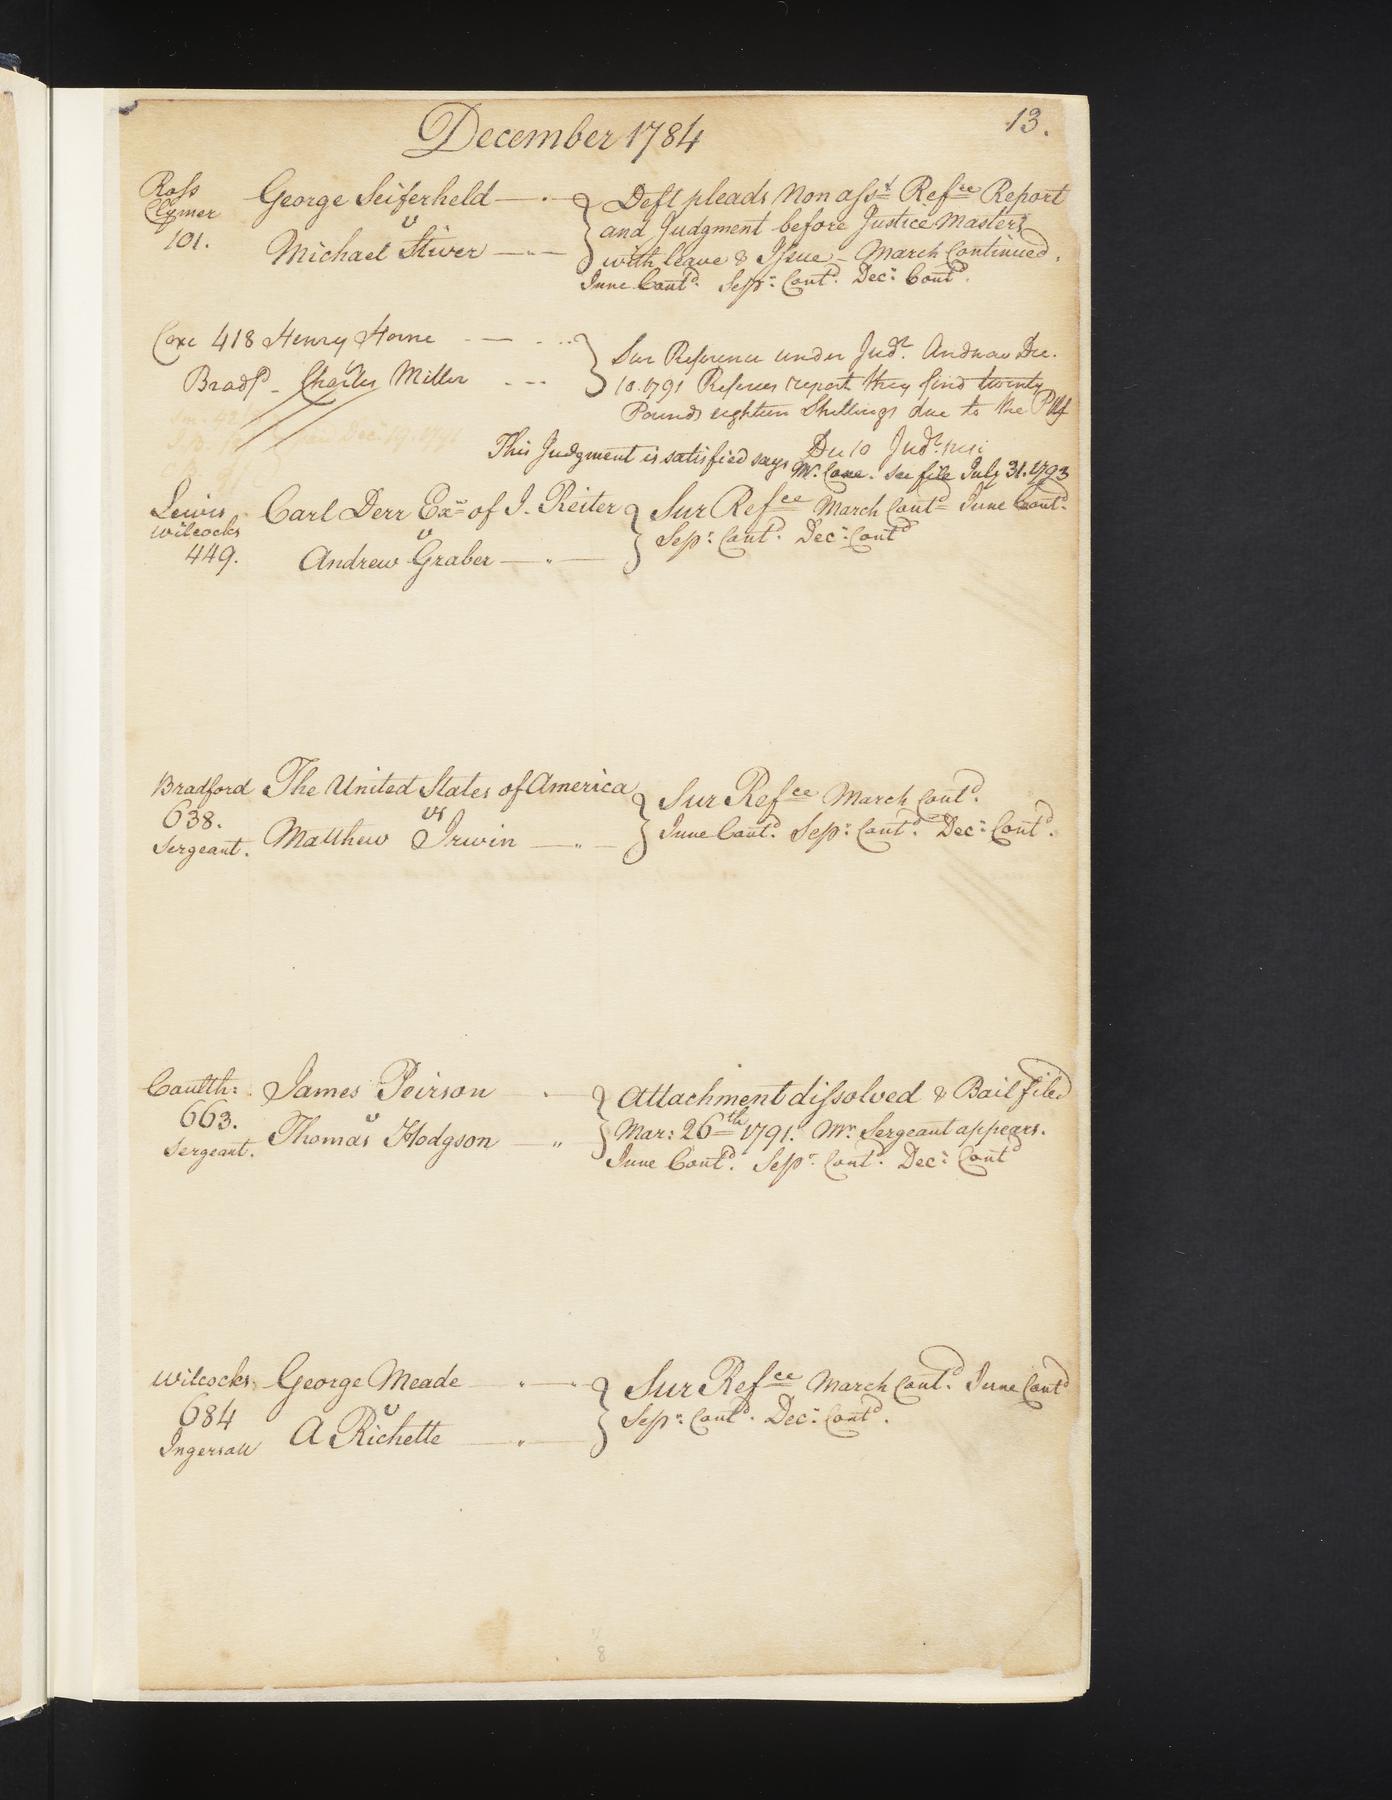 13.
December 1784
Ross George Seiferheld
Clymer v
101. Michael Stiver
Deft pleads Non asst Refce Report
and Judgment before Justice Masters
with leave & Issue - March Continued.
June Contd. Sepr. Contd. Decr. Contd.
Coxe 418 Henry Horne
v
Bradfd - Charles Miller
Sur Reference under Judt. And now Dec.
10. 1791 Referees report they find twenty
Pounds eighteen Shillings due to the Pltf
Dec 10 Judt. nisi
This Judgment is satisfied says Mr. Coxe. See file July 31. 1793
Lewis Carl Derr Exr of J. Reiter
Wilcocks v
449. Andrew Graber
Sur Refce March Contd June Contd.
Sepr. Contd. Decr. Contd
Bradford The United States of America
638. vs
Sergeant. Matthew Irwin
Sur Refce March Contd.
June Contd. Sepr. Contd. Decr. Contd.
Caulth: James Peirson
663. v
Sergeant. Thomas Hodgson
Attachment dissolved & Bail filed
Mar: 26th 1791. Mr. Sergeant appears.
June Contd. Sepr. Contd. Decr. Contd
Wilcocks George Meade
684 v
Ingersall A Richette
Sur Refce March Contd. June Contd
Sepr. Contd. Decr. Contd.
8